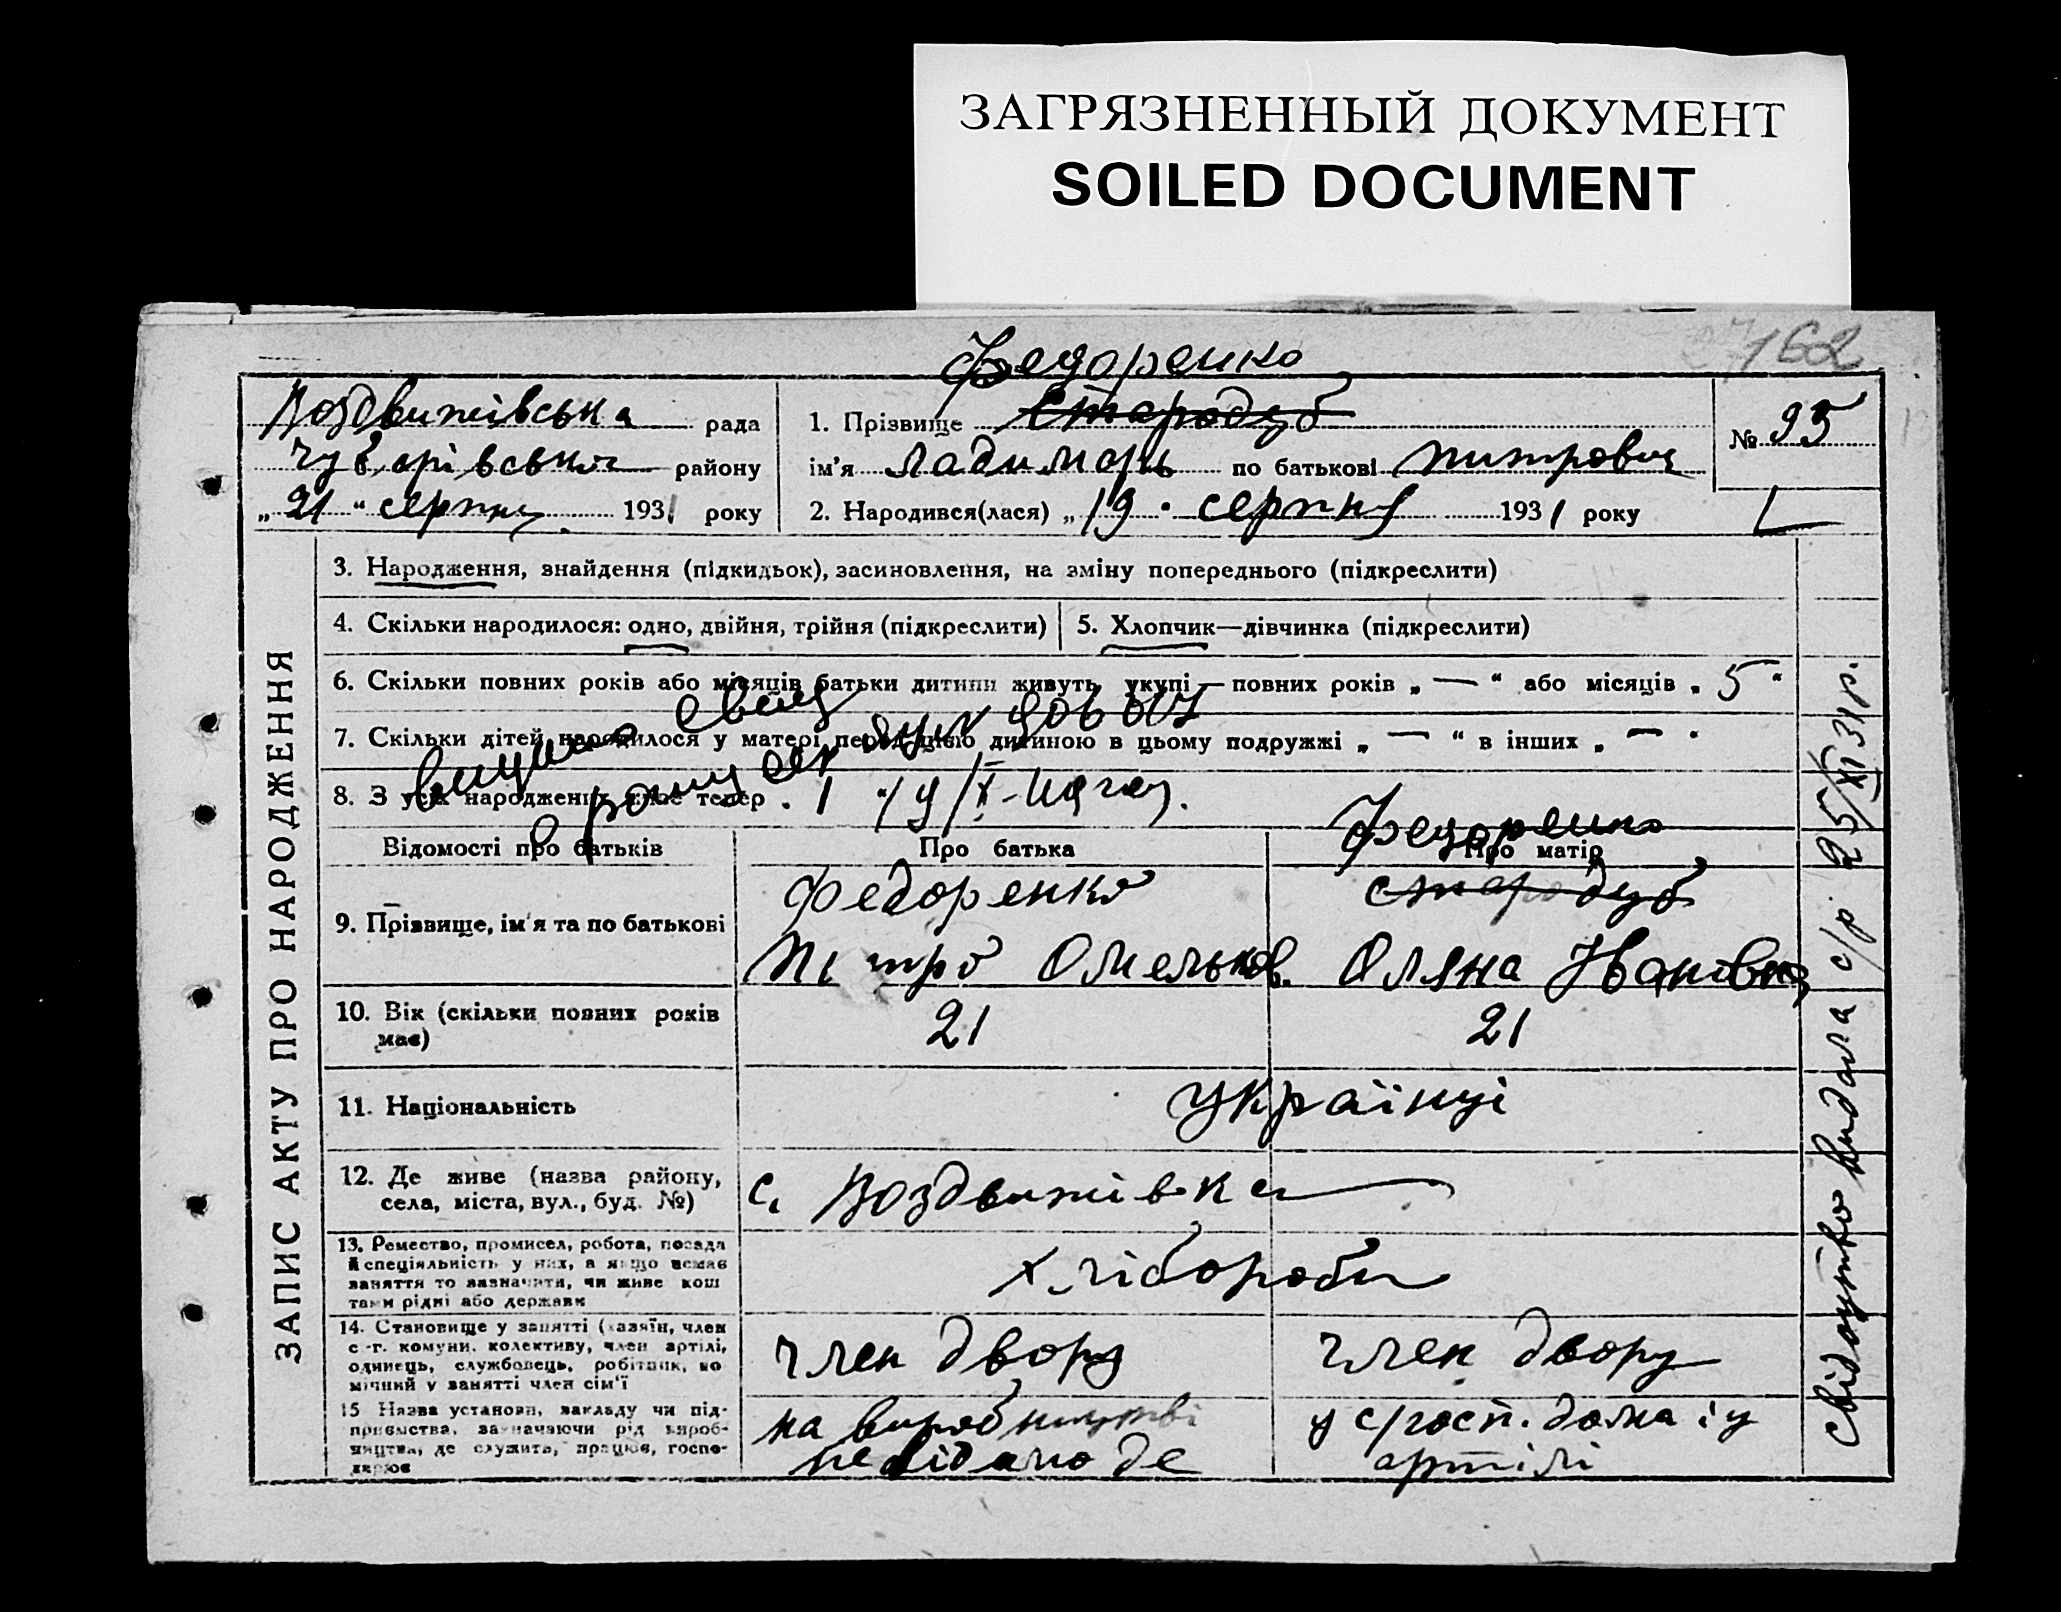 ЗАГРЯЗНЕННЫЙ ДОКУМЕНТ
SOILED DOCUMENT
162
Федоренко
Воздвижівська рада
району
„ 21 “ серпня 1931 року
1. Прізвище Стародуб
ім'я Ладимарь по батькові Питрович
2. Народився(лася) „ 19 серпня 1931 року
№ 95
ЗАПИС АКТУ ПРО НАРОДЖЕННЯ
3. Народження, знайдення (підкидьок), засиновлення, на зміну попереднього (підкреслити)
4. Скільки народилося: одно, двійня, трійня (підкреслити)
5. Хлопчик—дівчинка (підкреслити)
6. Скільки повних років або місяців батьки дитини живуть укупі — повних років „ — “ або місяців „ 5 “
7. Скільки дітей народилося у матері перед цією дитиною в цьому подружжі „ — “ в інших „ — “
8. З усіх народжених живе тепер „ 1 “
Відомості про батьків
Про батька
Про матір
Федоренко
9. Прізвище, ім'я та по батькові
Федоренко
Питро Омельков.
Стародуб
Оляна Іванівна
10. Вік (скільки повних років має)
21
21
11. Національність
українці
12. Де живе (назва району, села, міста, вул., буд. №)
с. Воздвижівка
13. Ремество, промисел, робота, посада й спеціяльність у них, а якщо немає заняття то зазначити, чи живе коштами рідні або держави
хлібороби
14. Становище у занятті (хазяїн, член с.-г. комуни, колективу, член артілі, одинець, службовець, робітник, помічний у занятті член сім'ї
член двору
член двору
15 Назва установи, закладу чи підприємства, зазначаючи рід виробництва, де служить, працює, господарює
на виробництві
невідамо де
у с/госп. дома і у
артілі
свідоцтво видала с/р 25/XI 31 р.